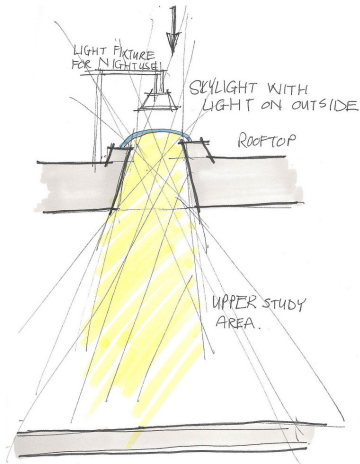 LIGHT FIXTURE
FOR NIGHT USE
SKYLIGHT WITH
LIGHT ON OUTSIDE
ROOFTOP
UPPER STUDY
AREA.